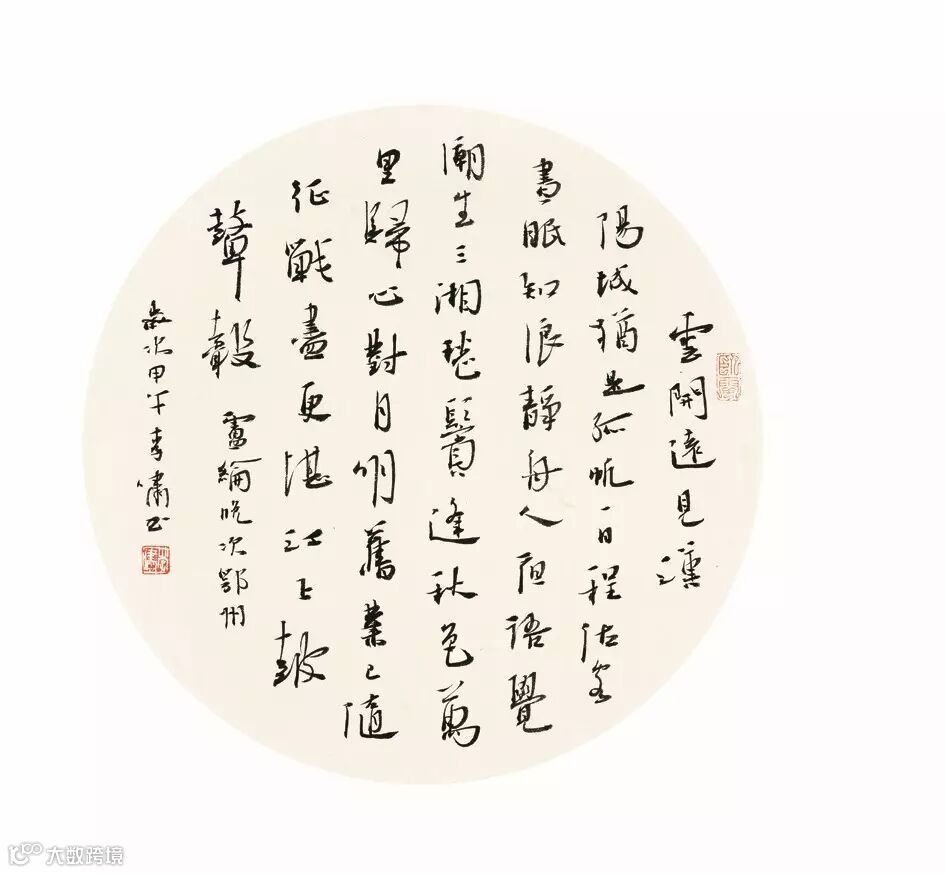 雲開遠見漢
陽城猶是孤帆一日程估客
晝眠知浪靜舟人夜語覺
潮生三湘愁鬢逢秋色萬
里歸心對月明舊業已隨
征戰盡更堪江上鼓
鼙聲 盧綸晚次鄂州
歲次甲午李嘯書
大数跨境